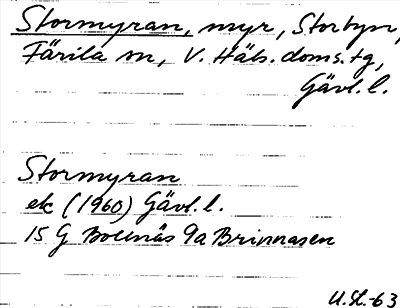 Stormyran, myr, Storbyn,
Färila sn, V. Häls. doms.tg,
Gävl. l.
Stormyran
ek (1960) Gävl. l.
15 G Bollnäs 9a Brinnasen
U.Sl.-63